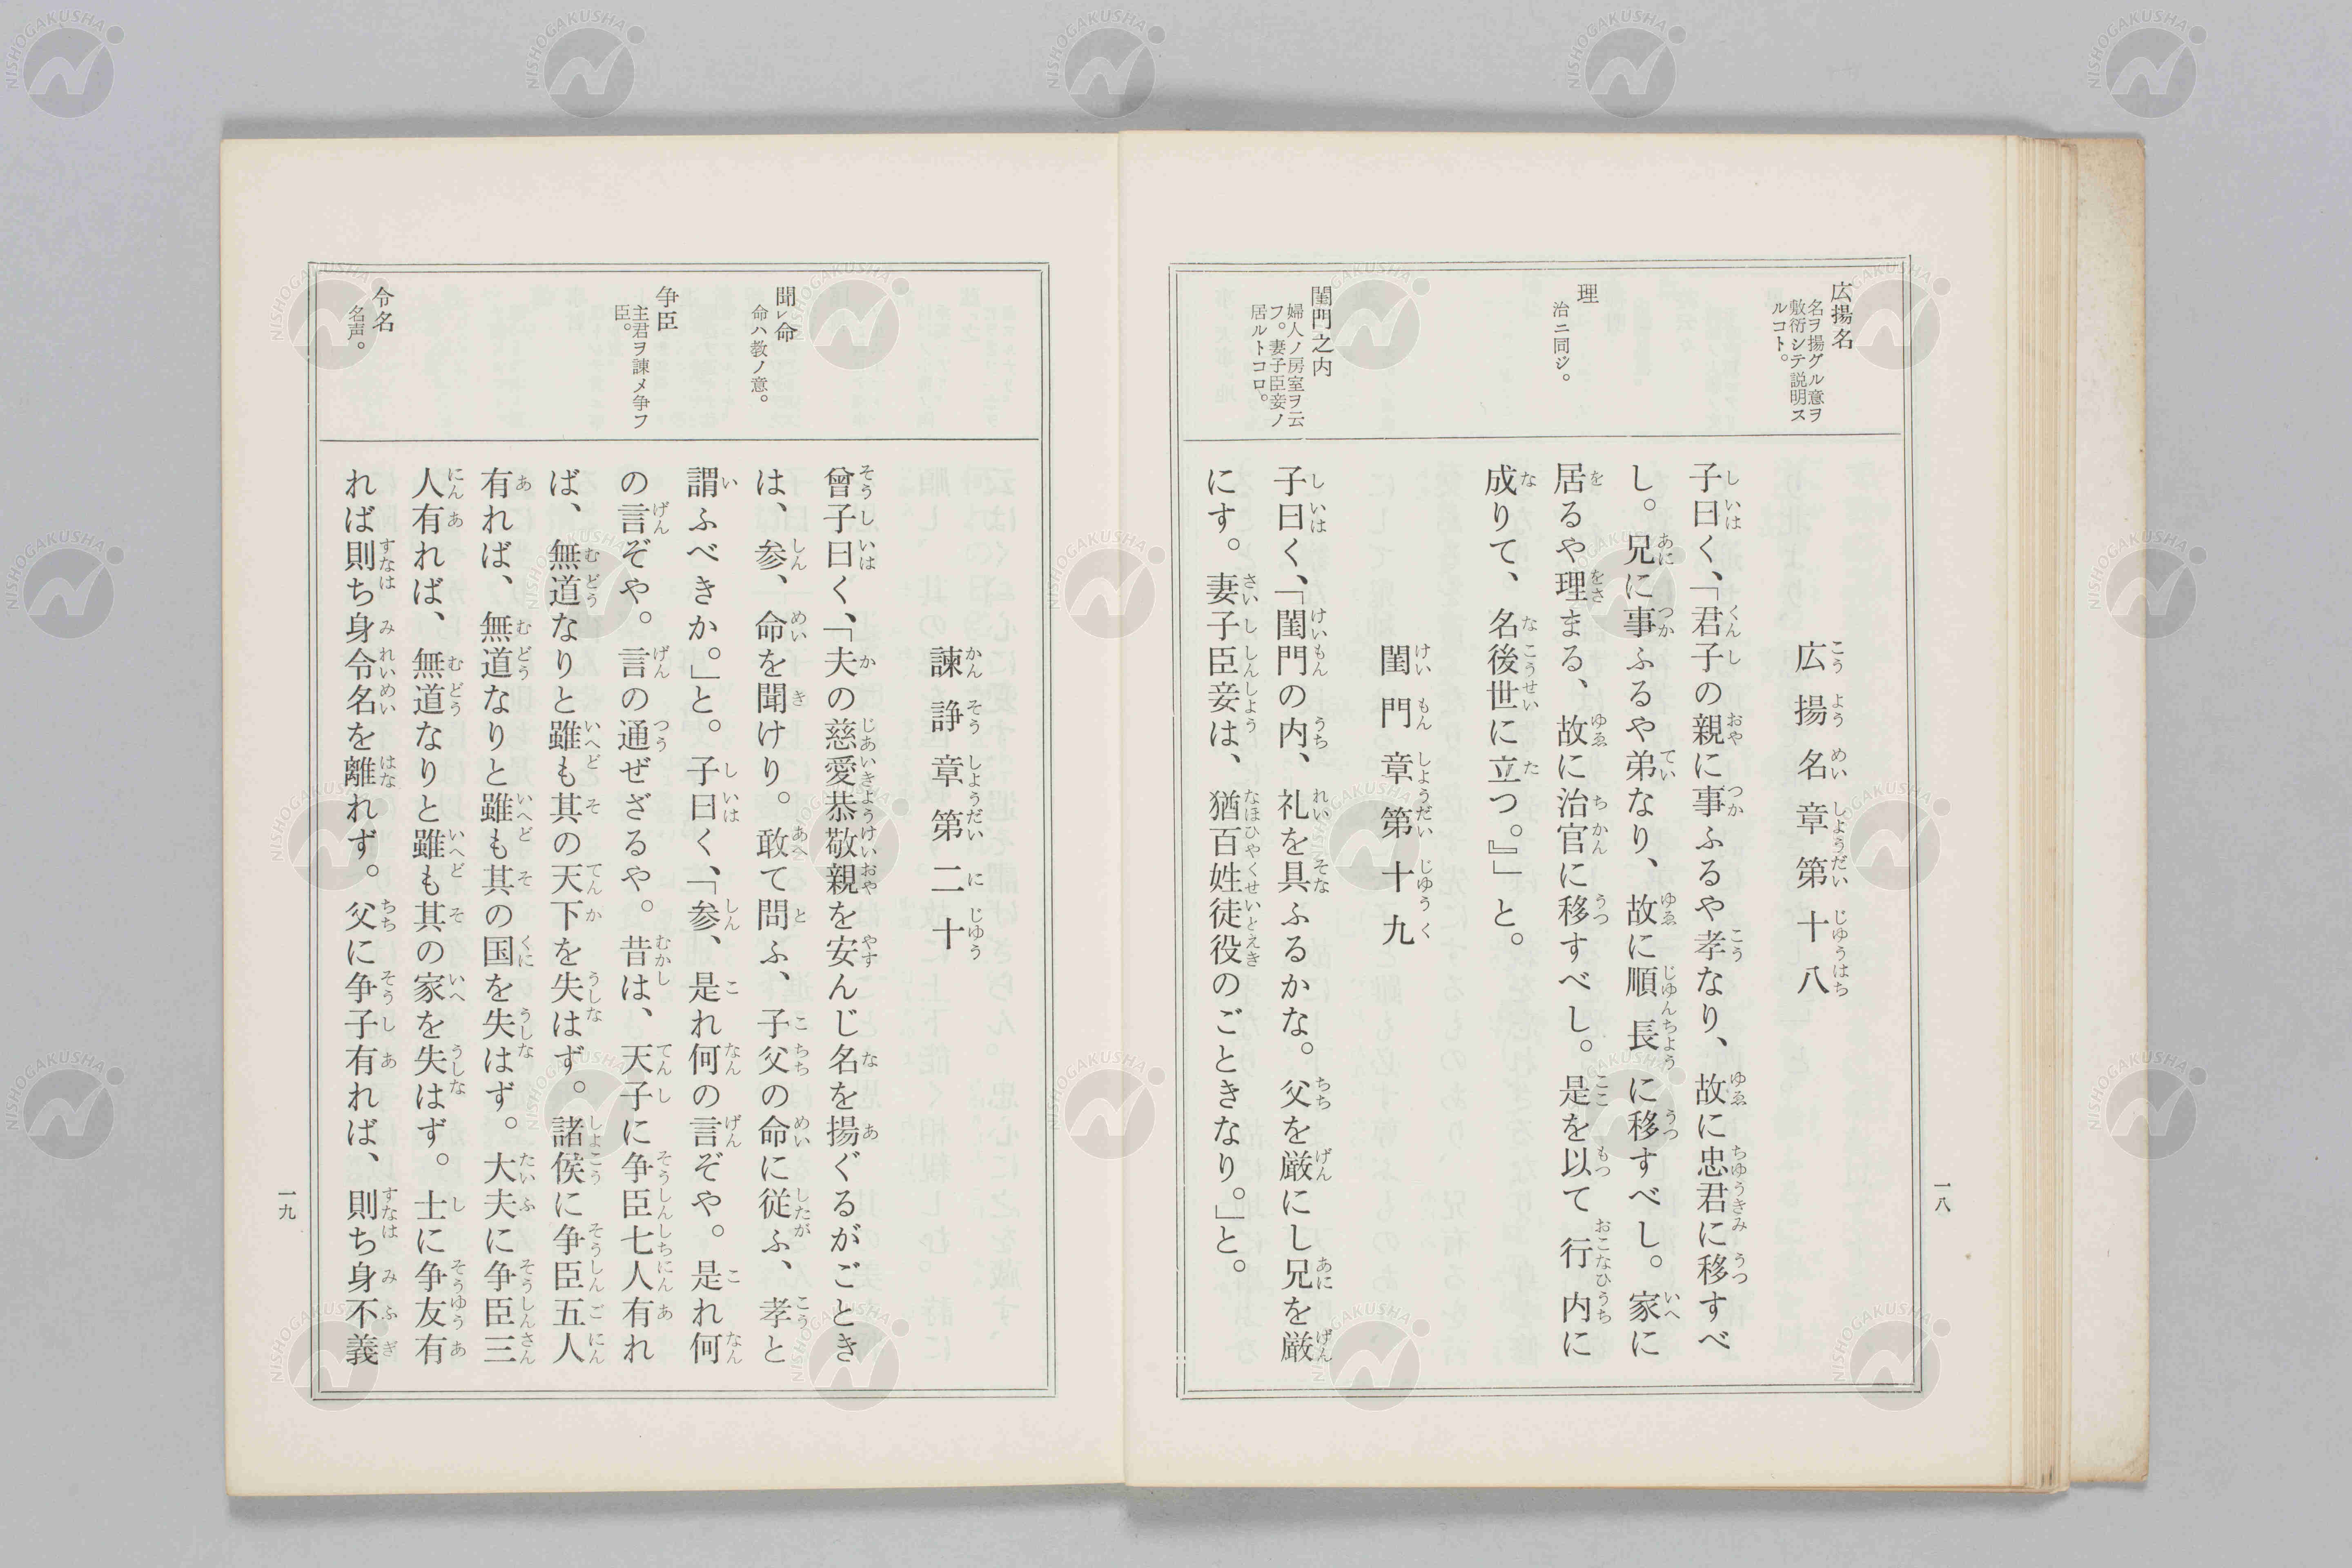 広揚名
名ヲ揚グル意ヲ
敷衍シテ説明ス
ルコト。
理
治ニ同ジ。
閨門之内
婦人ノ房室ヲ云
フ。妻子臣妾ノ
居ルトコロ。
広揚名章第十八
子曰く、「君子の親に事ふるや孝なり、故に忠君に移すべ
し。兄に事ふるや弟なり、故に順長に移すべし。家に
居るや理まる、故に治官に移すべし。是を以て行内に
成りて、名後世に立つ。』」と。
閨門章第十九
子曰く、「閨門の内、礼を具ふるかな。父を厳にし兄を厳
にす。妻子臣妾は、猶百姓徒役のごときなり。」と。
一八
聞レ命
命ハ教ノ意。
争臣
主君ヲ諫メ争フ
臣。
令名
名声。
諫諍章第二十
曾子曰く、「夫の慈愛恭敬親を安んじ名を揚ぐるがごとき
は、参、命を聞けり。敢て問ふ、子父の命に従ふ、孝と
謂ふべきか。」と。子曰く、「参、是れ何の言ぞや。是れ何
の言ぞや。言の通ぜざるや。昔は、天子に争臣七人有れ
ば、無道なりと雖も其の天下を失はず。諸侯に争臣五人
有れば、無道なりと雖も其の国を失はず。大夫に争臣三
人有れば、無道なりと雖も其の家を失はず。士に争友有
れば則ち身令名を離れず。父に争子有れば、則ち身不義
一九
NISHOGAKUSHA